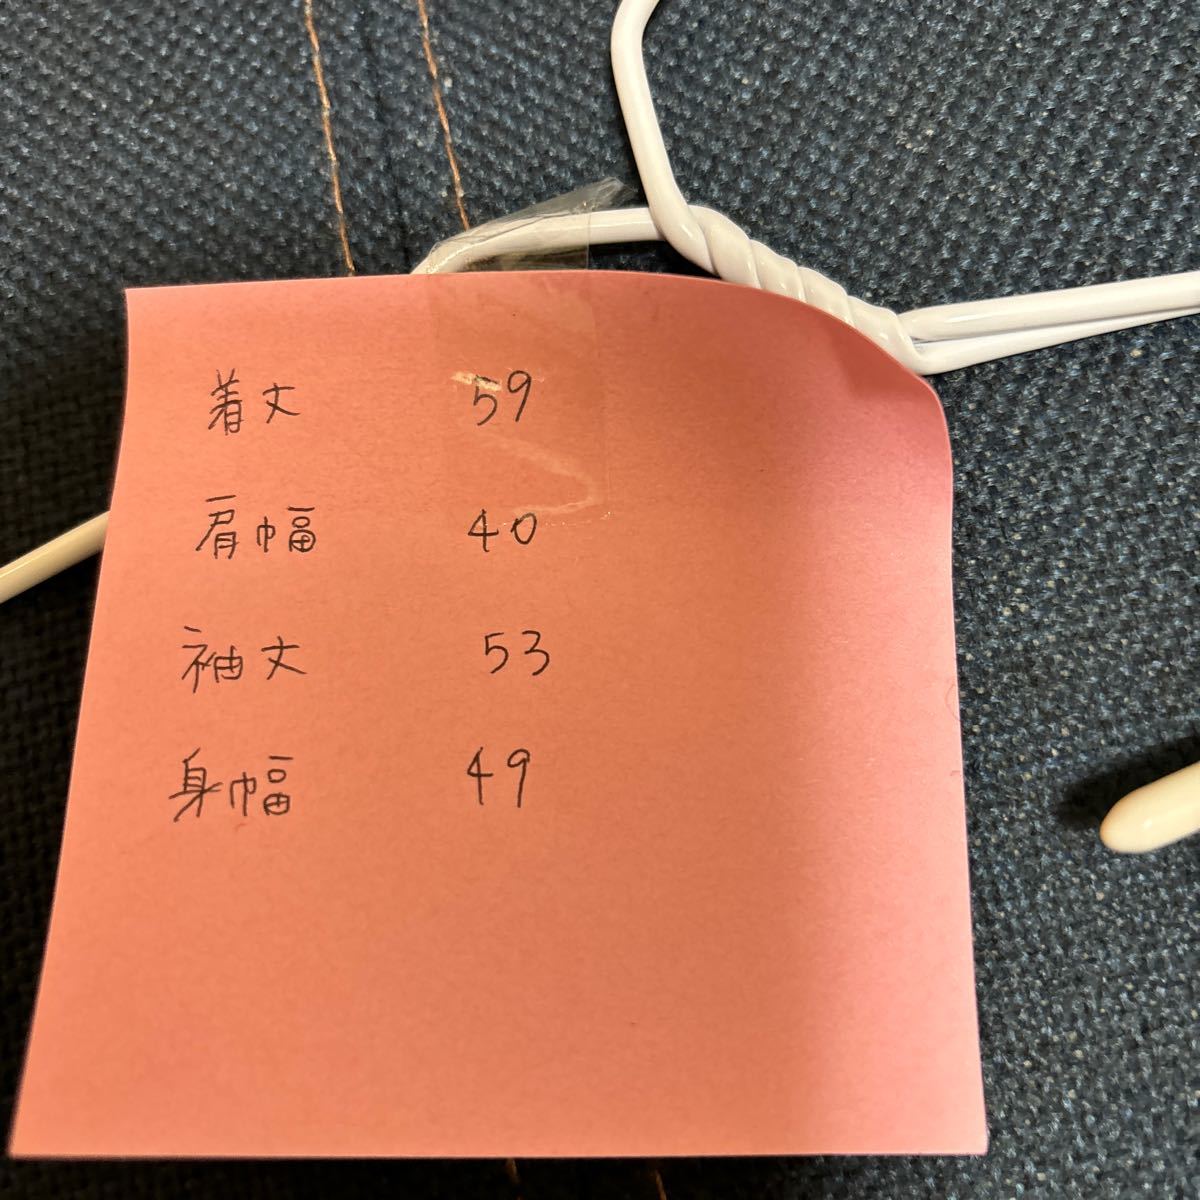 着丈 59
肩幅 40
袖丈 53
身幅 49